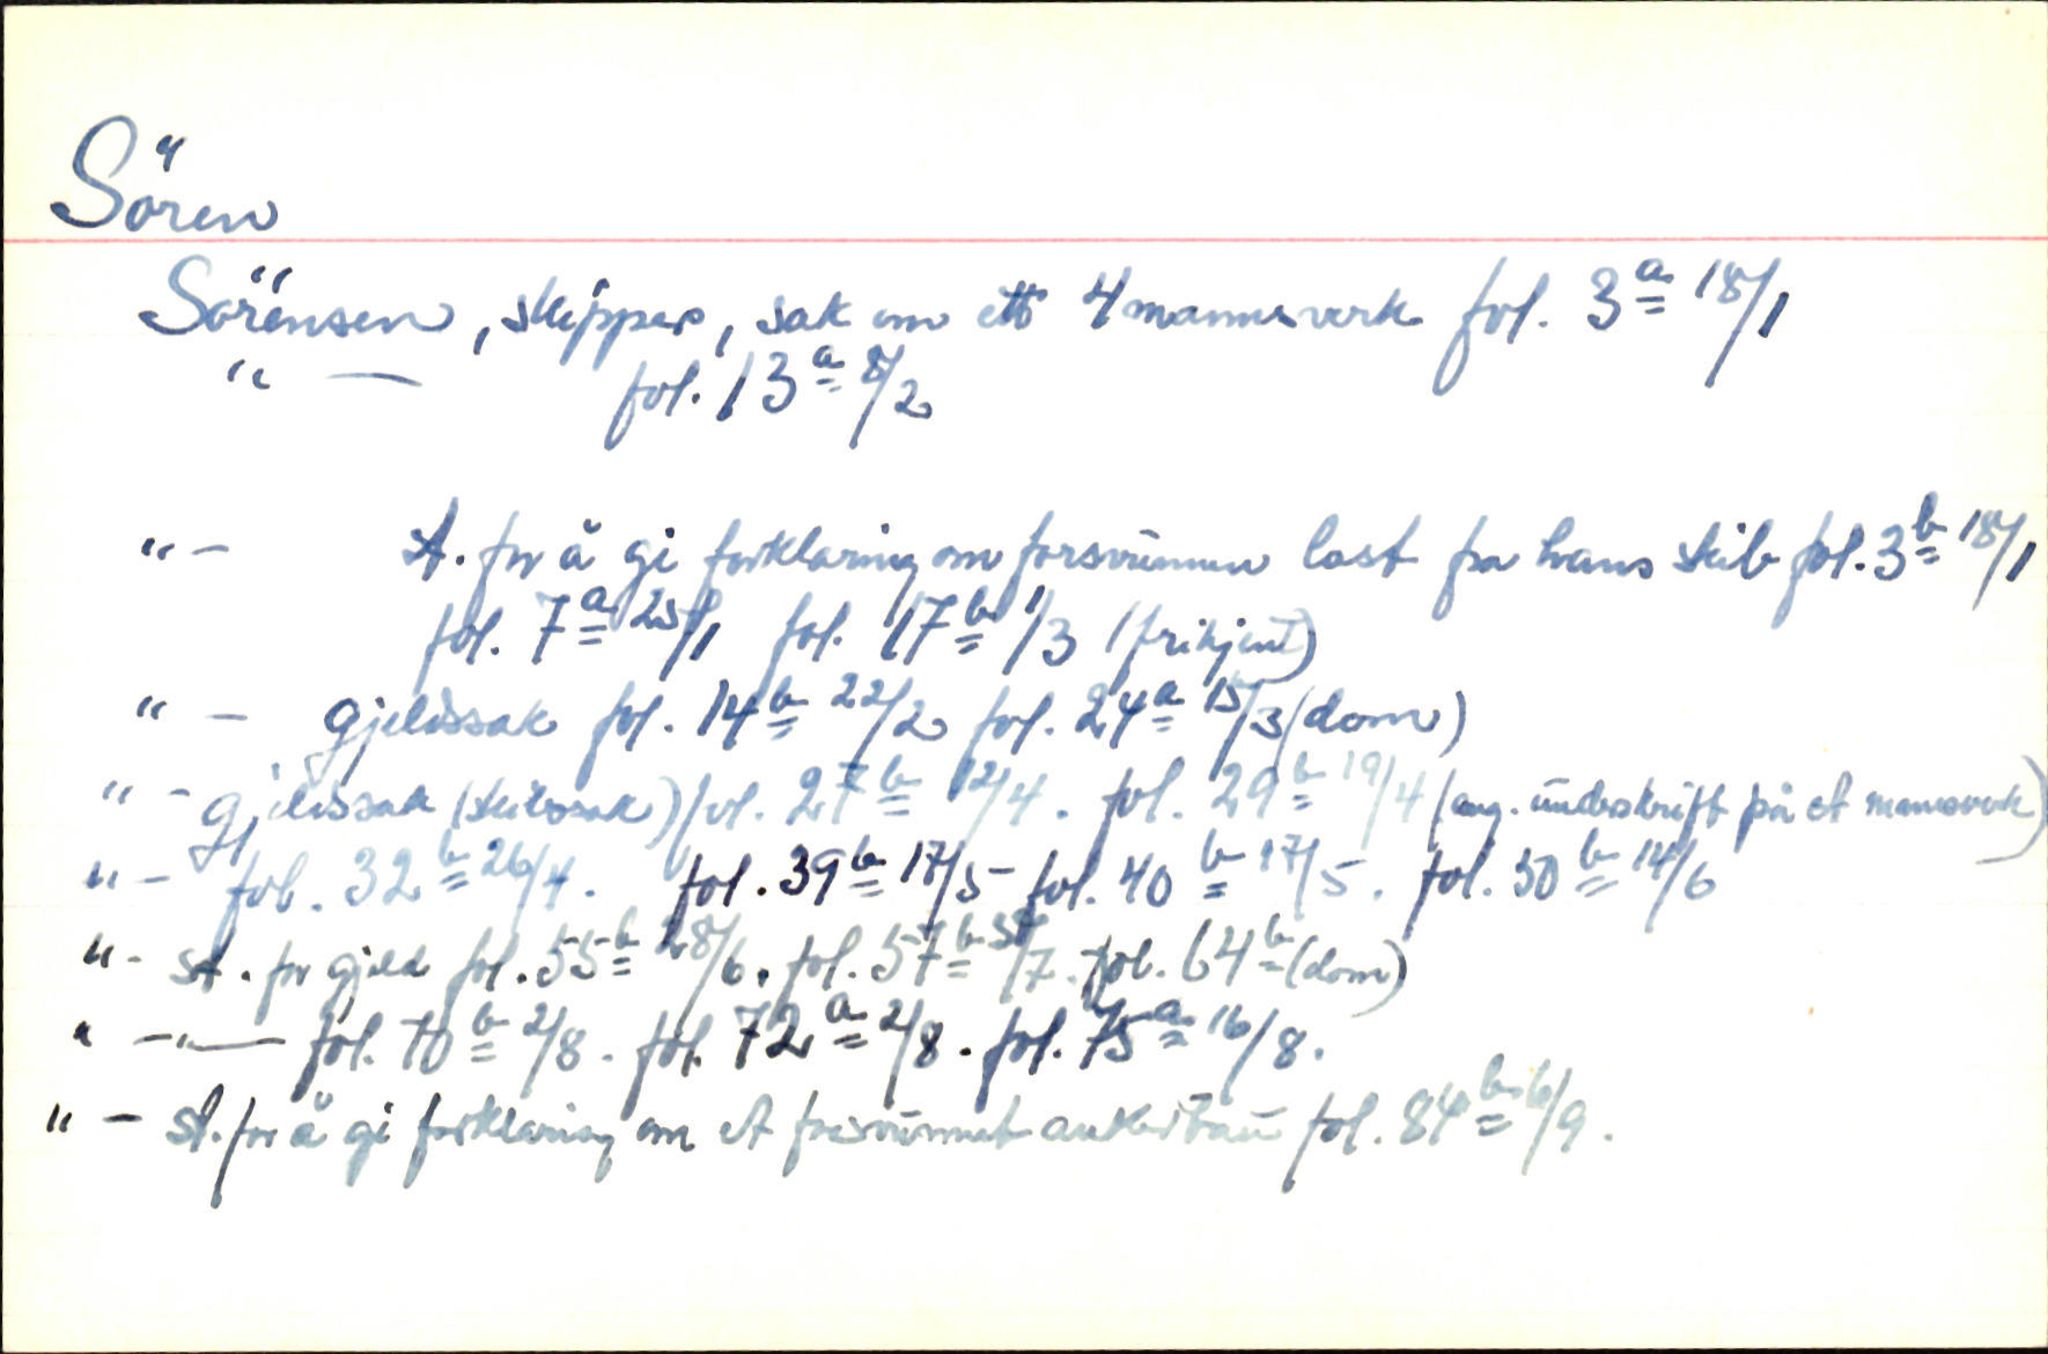 Sören
Sörensen, skipper, sak om ett 4 mannsverk fol. 3a 18/1
" — fol. 13a 8/2
" - st. for å gi forklaring om forsvunnen last fra hans skib fol. 3b 18/1
fol. 7a 25/1 fol. 17b 1/3 (frikjent)
" - gjeldssak fol. 14b 22/2 fol. 24a 15/3 (dom)
" - gjeldssak (skilssak) fol. 27b 12/4. fol. 29b 19/4 (ang. underskrift på et mannsverk)
" - fol. 32b 26/4. fol. 39b 17/5 fol. 40b 17/5. fol. 50b 14/6
" - st. for gjeld fol. 55b 28/6. fol. 57b /7. fol. 64b (dom)
" — " — fol. 70b 2/8. fol. 72a 2/8. fol. 75a 16/8.
" - st. for å gi forklaring om et forsvunnet ankertau fol. 84b 6/9.